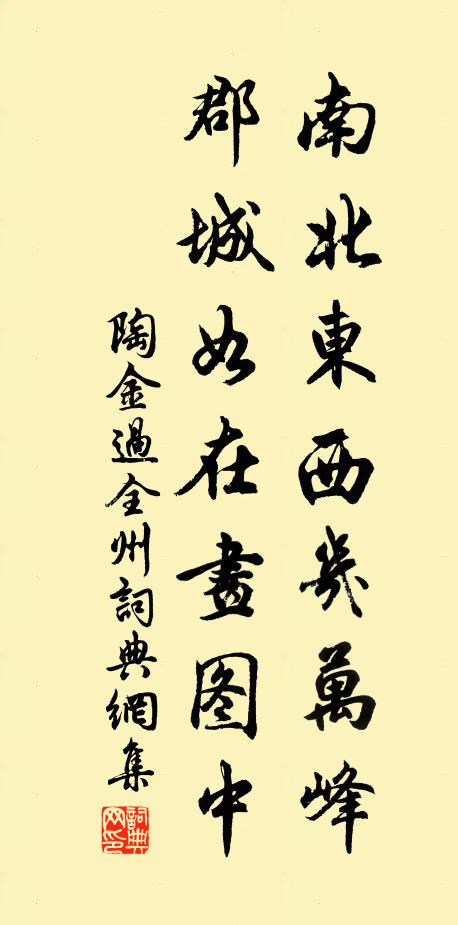 南北東西幾萬峰
郡城如在畫图中
陶金過全州詞典網集
詞典网印